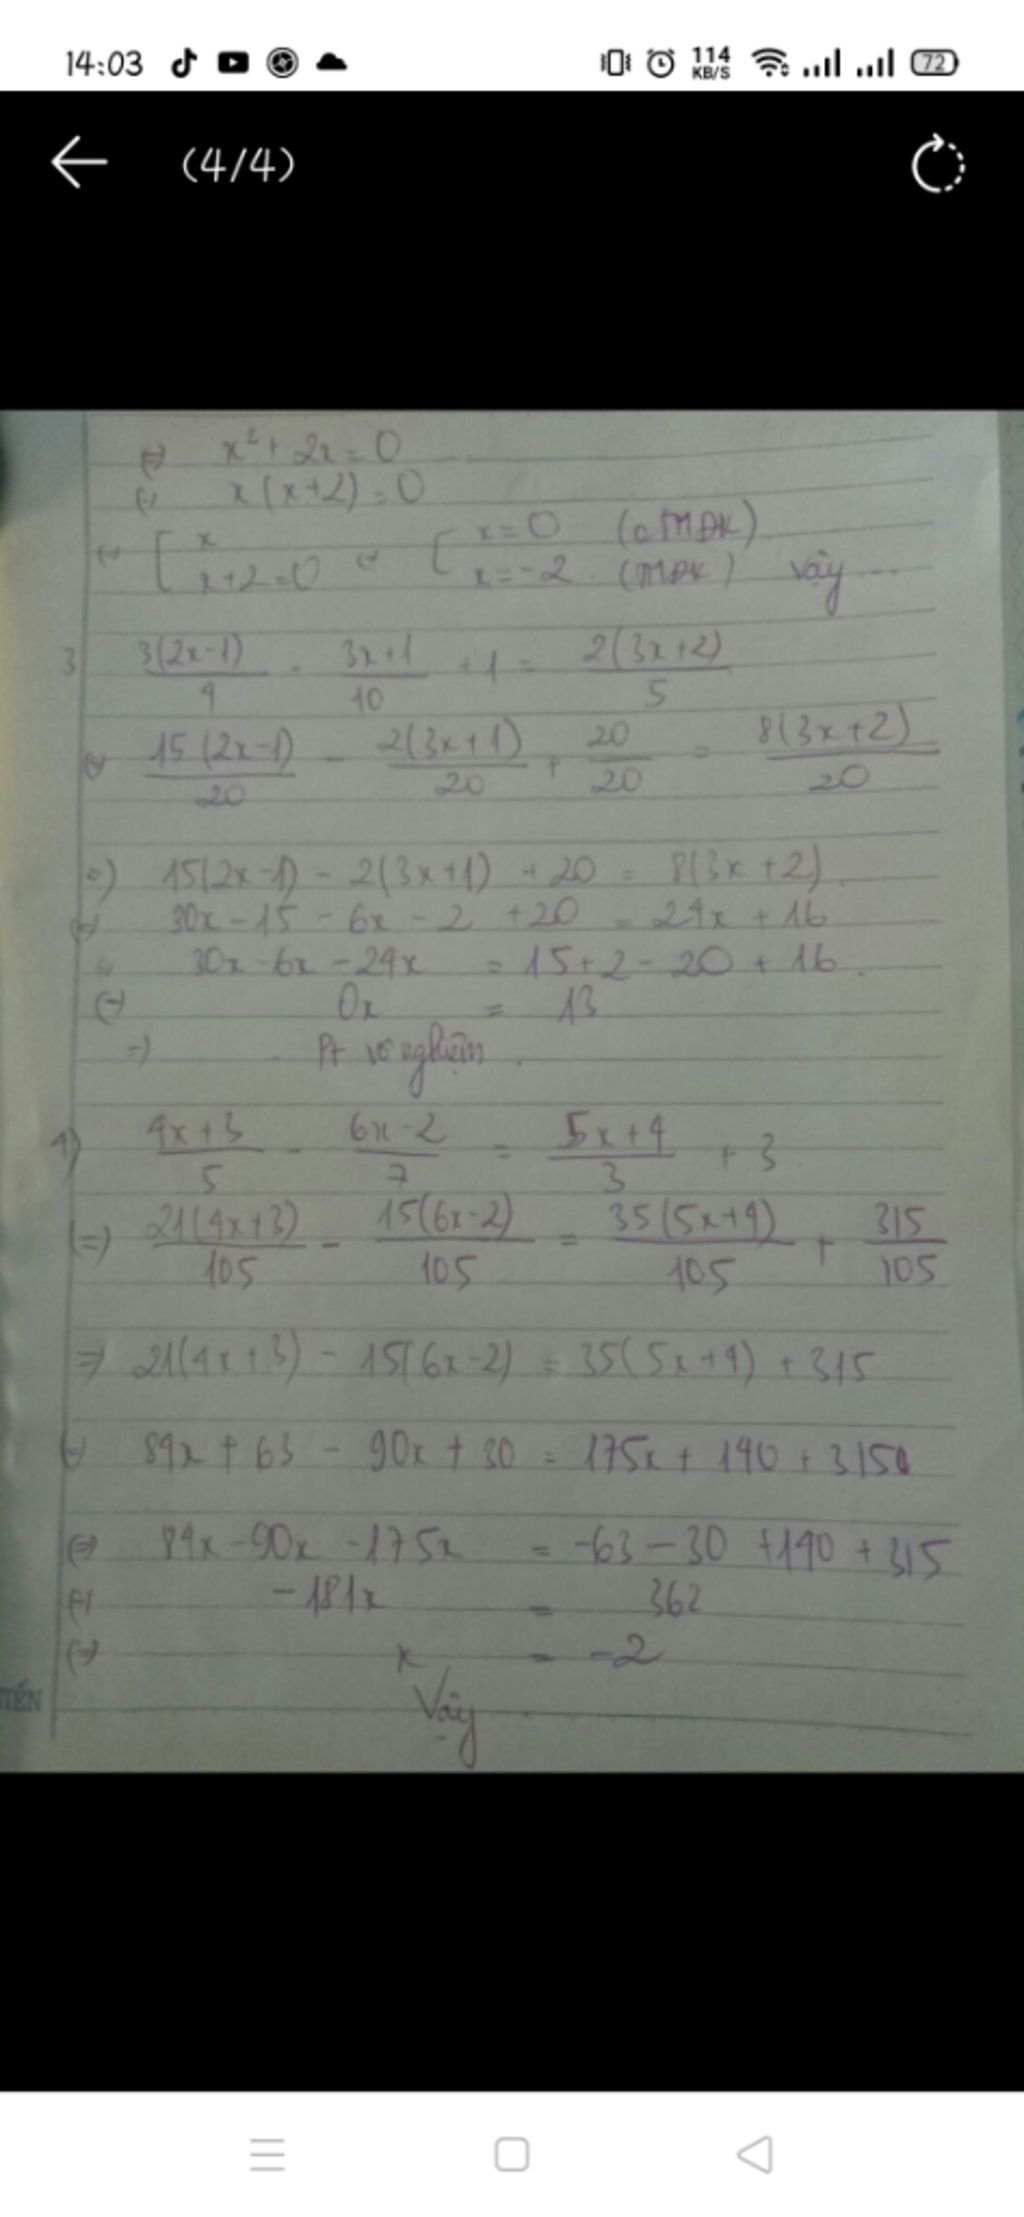 14:03 114 KB/S 72
(4/4)
(=) x² + 2x = 0
(=) x(x+2) = 0
(=) [ x [ x = 0 (0TMĐK)
x+2=0 (=) x = -2 (TMĐK) Vậy ...
3 3(2x-1)/4 - 3x+1/10 + 1 = 2(3x+2)/5
(=) 15(2x-1)/20 - 2(3x+1)/20 + 20/20 = 8(3x+2)/20
=) 15(2x-1) - 2(3x+1) + 20 = 8(3x+2)
(=) 30x - 15 - 6x - 2 + 20 = 24x + 16
30x - 6x - 24x = 15 + 2 - 20 + 16
(=) 0x = 13
=) Pt vô nghiệm
4) 4x+3/5 - 6x-2/7 = 5x+4/3 + 3
(=) 21(4x+3)/105 - 15(6x-2)/105 = 35(5x+4)/105 + 315/105
=) 21(4x+3) - 15(6x-2) = 35(5x+4) + 315
(=) 84x + 63 - 90x + 30 = 175x + 140 + 315
(=) 84x - 90x - 175x = -63 - 30 + 140 + 315
(=) -181x = 362
(=) x = -2
TIẾN
Vậy